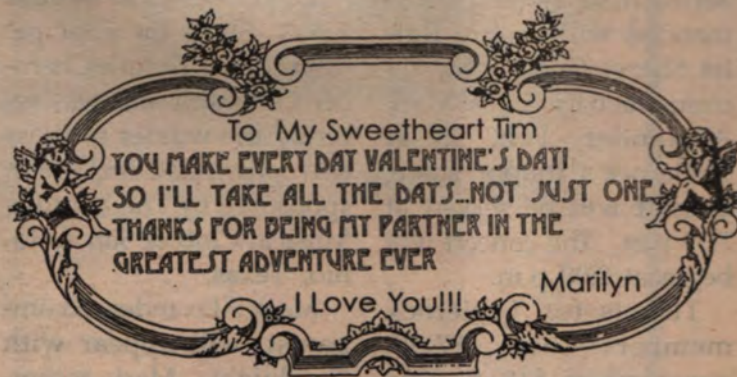 To My Sweetheart Tim
YOU MAKE EVERY DAY VALENTINE'S DAY!
SO I'LL TAKE ALL THE DAYS...NOT JUST ONE
THANKS FOR BEING MY PARTNER IN THE
GREATEST ADVENTURE EVER
Marilyn
I Love You!!!